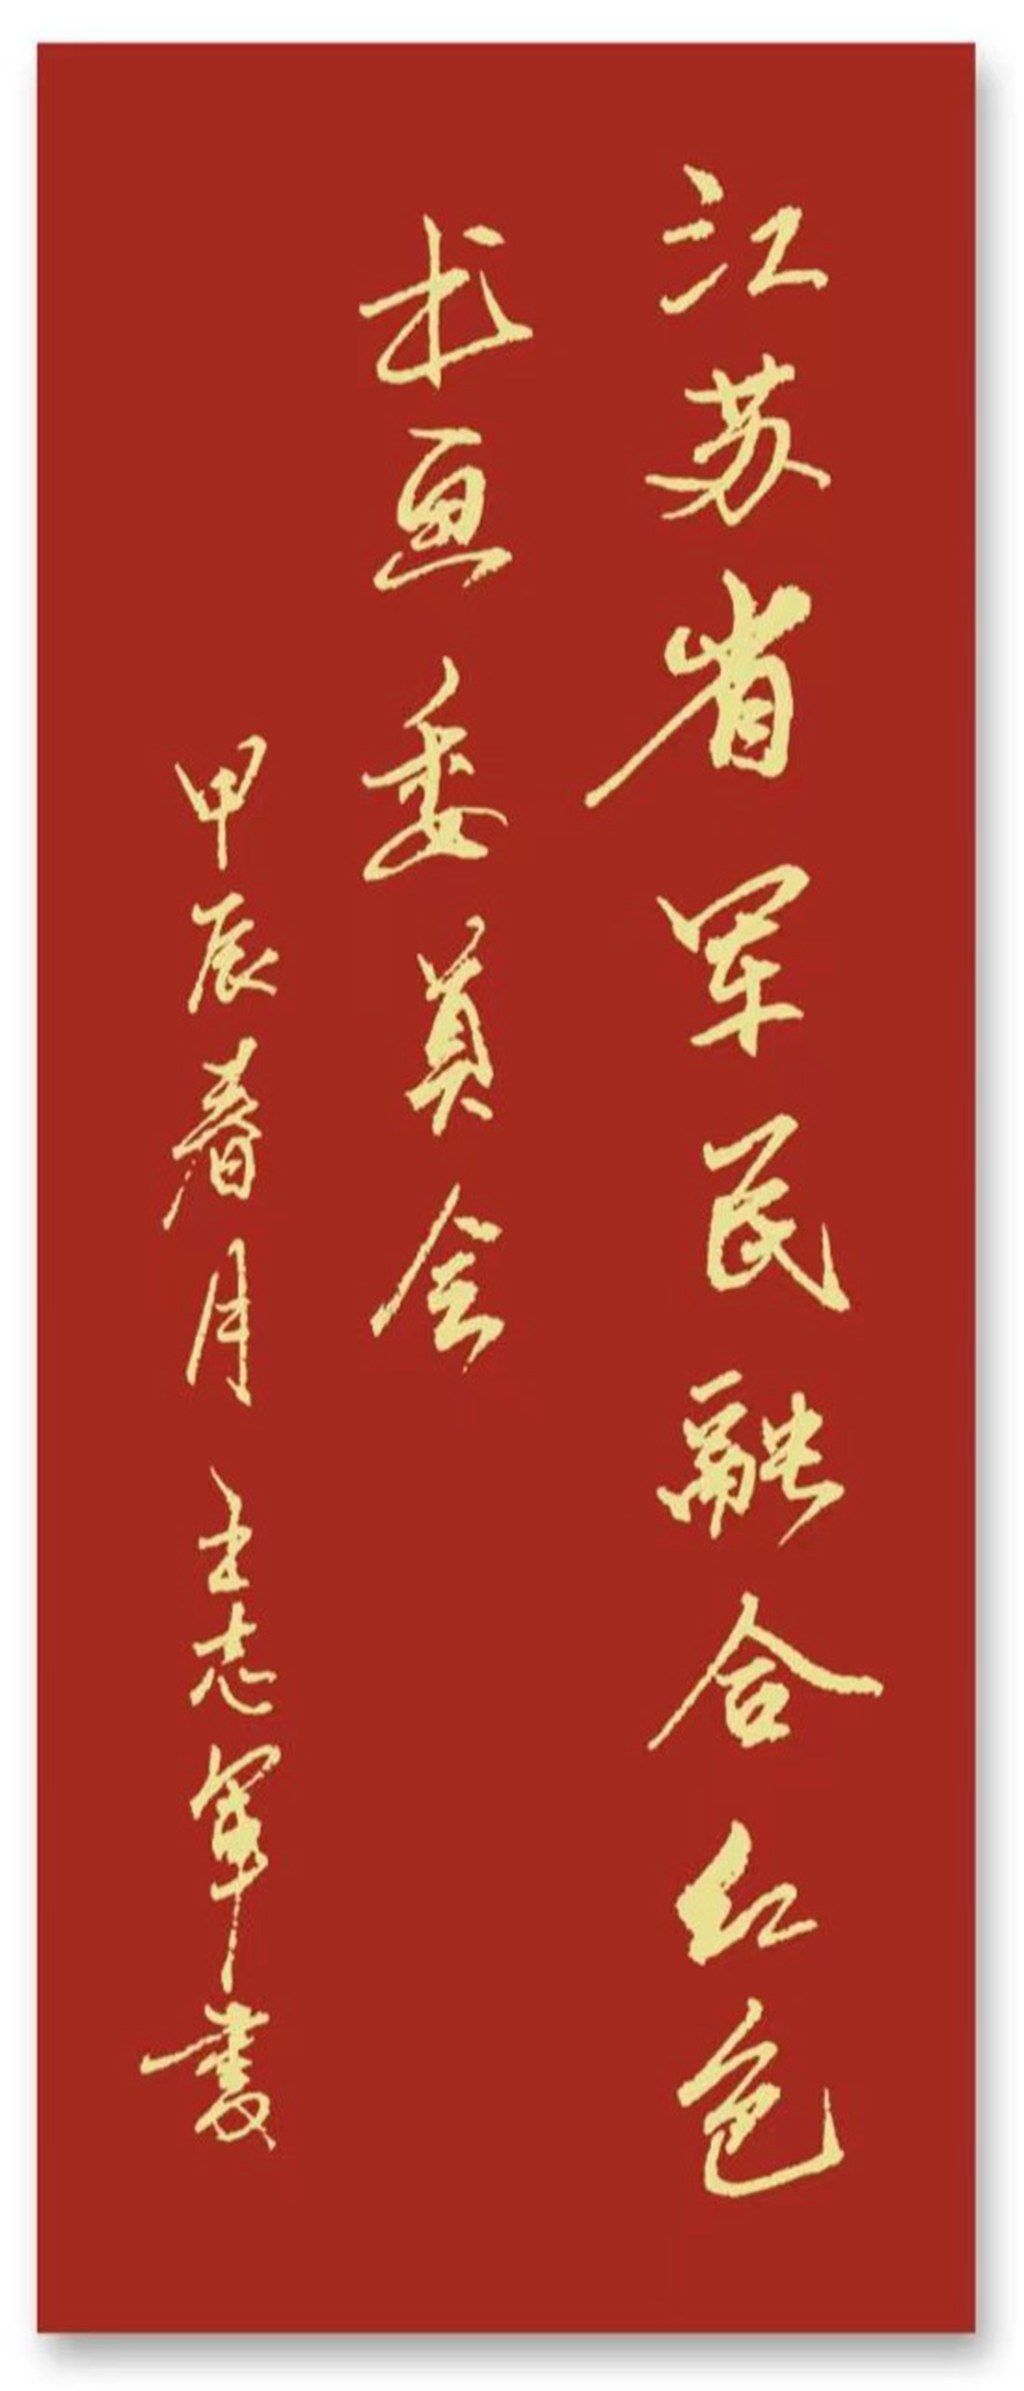 江苏省军民融合红色
术画委员会
甲辰春月 王志軍書